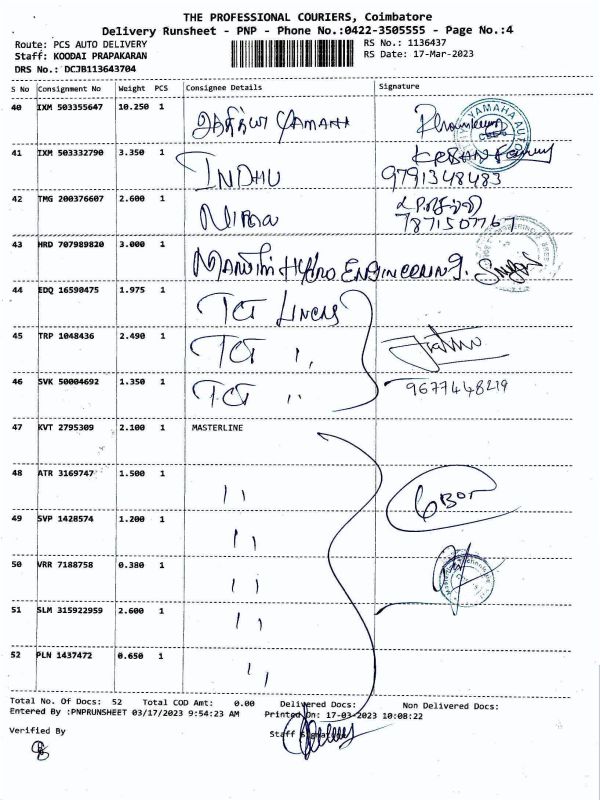 THE PROFESSIONAL COURIERS, Coimbatore
Delivery Runsheet - PNP - Phone No.:0422-3505555 - Page No.:4
Route: PCS AUTO DELIVERY RS No.: 1136437
Staff: KOODAI PRAPAKARAN RS Date: 17-Mar-2023
DRS No.: DCJB113643704
S No Consignment No Weight PCS Consignee Details Signature
40 IXM 503355647 10.250 1 YAMAHA
41 IXM 503332790 3.350 1 INDHU 9791348483
42 TMG 200376607 2.600 1 7871507767
43 HRD 707989820 3.000 1 MARUTHI HYDRO ENGINEERING.
44 EDQ 16590475 1.975 1 TCI
45 TRP 1048436 2.490 1 TCI ,,
46 SVK 50004692 1.350 1 TCI ,, 9677448219
47 KVT 2795309 2.100 1 MASTERLINE
48 ATR 3169747 1.500 1 ,,
49 SVP 1428574 1.200 1 ,,
50 VRR 7188758 0.380 1 ,,
51 SLM 315922959 2.600 1 ,,
52 PLN 1437472 0.650 1 ,,
Total No. Of Docs: 52 Total COD Amt: 0.00 Delivered Docs: Non Delivered Docs:
Entered By :PNPRUNSHEET 03/17/2023 9:54:23 AM Printed On: 17-03-2023 10:08:22
Verified By Staff